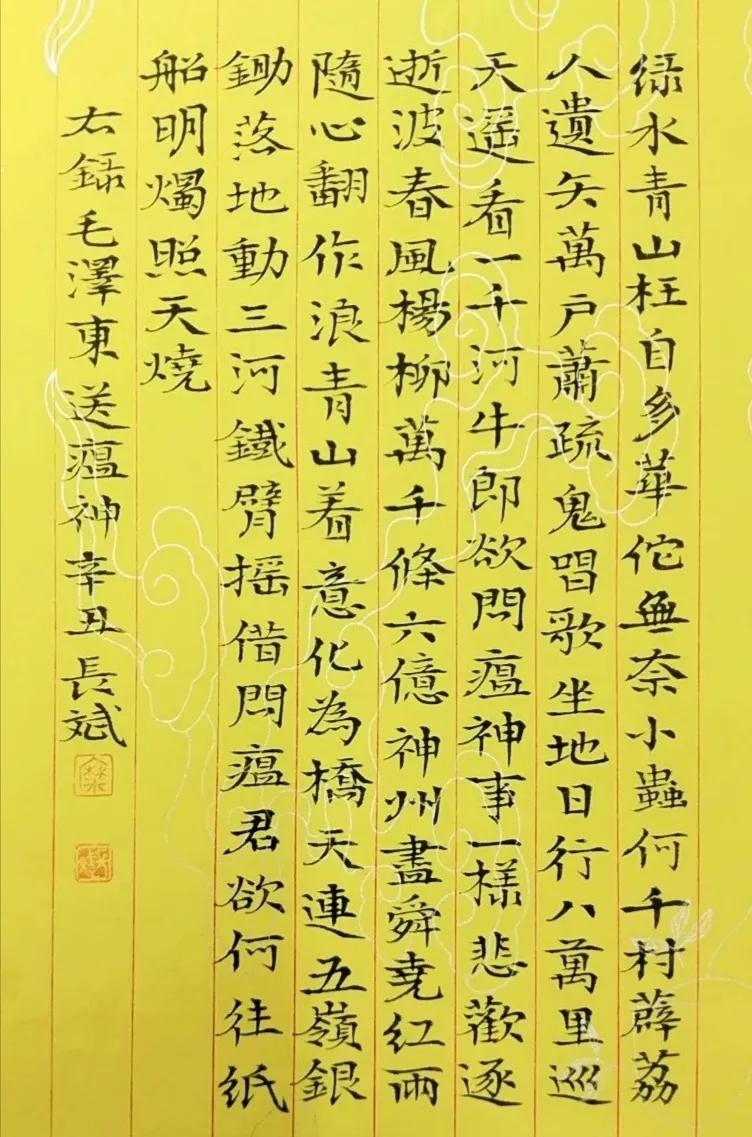 绿水青山枉自多華佗無奈小蟲何千村薜荔
人遺矢萬戶蕭疏鬼唱歌坐地日行八萬里巡
天遥看一千河牛郎欲問瘟神事一樣悲歡逐
逝波春風楊柳萬千條六億神州盡舜堯紅雨
隨心翻作浪青山着意化為橋天連五嶺銀
鋤落地動三河鐵臂摇借問瘟君欲何往紙
船明燭照天燒
右録毛澤東送瘟神辛丑長斌